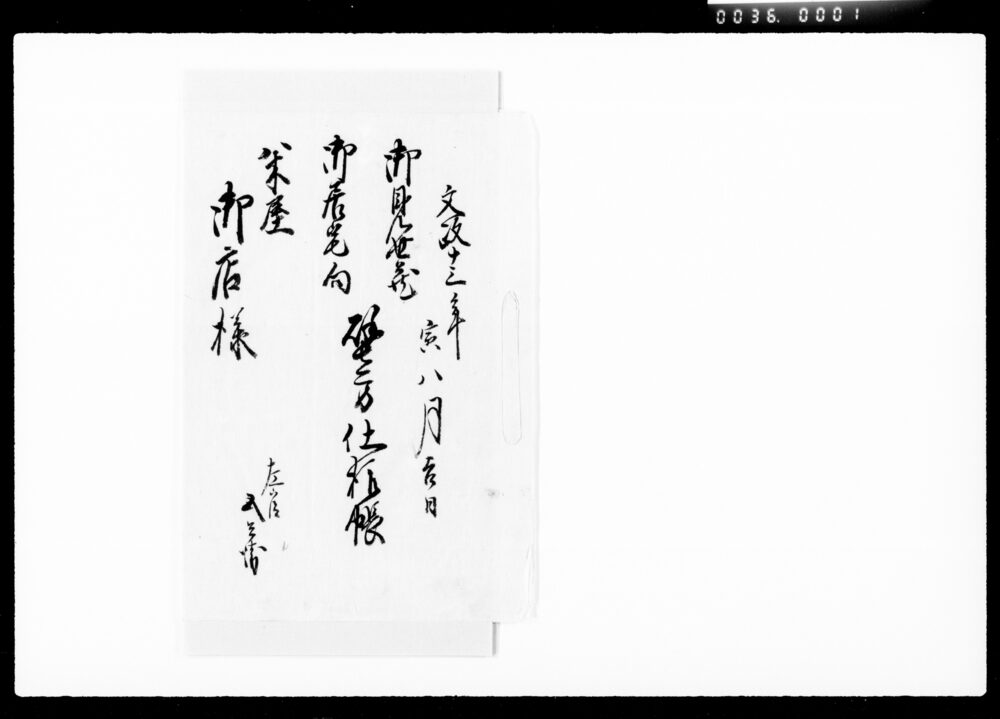 0036. 0001
文政十三年
寅八月吉日
御見世蔵
御居宅向
壁方仕様帳
柴屋
御店様
左官